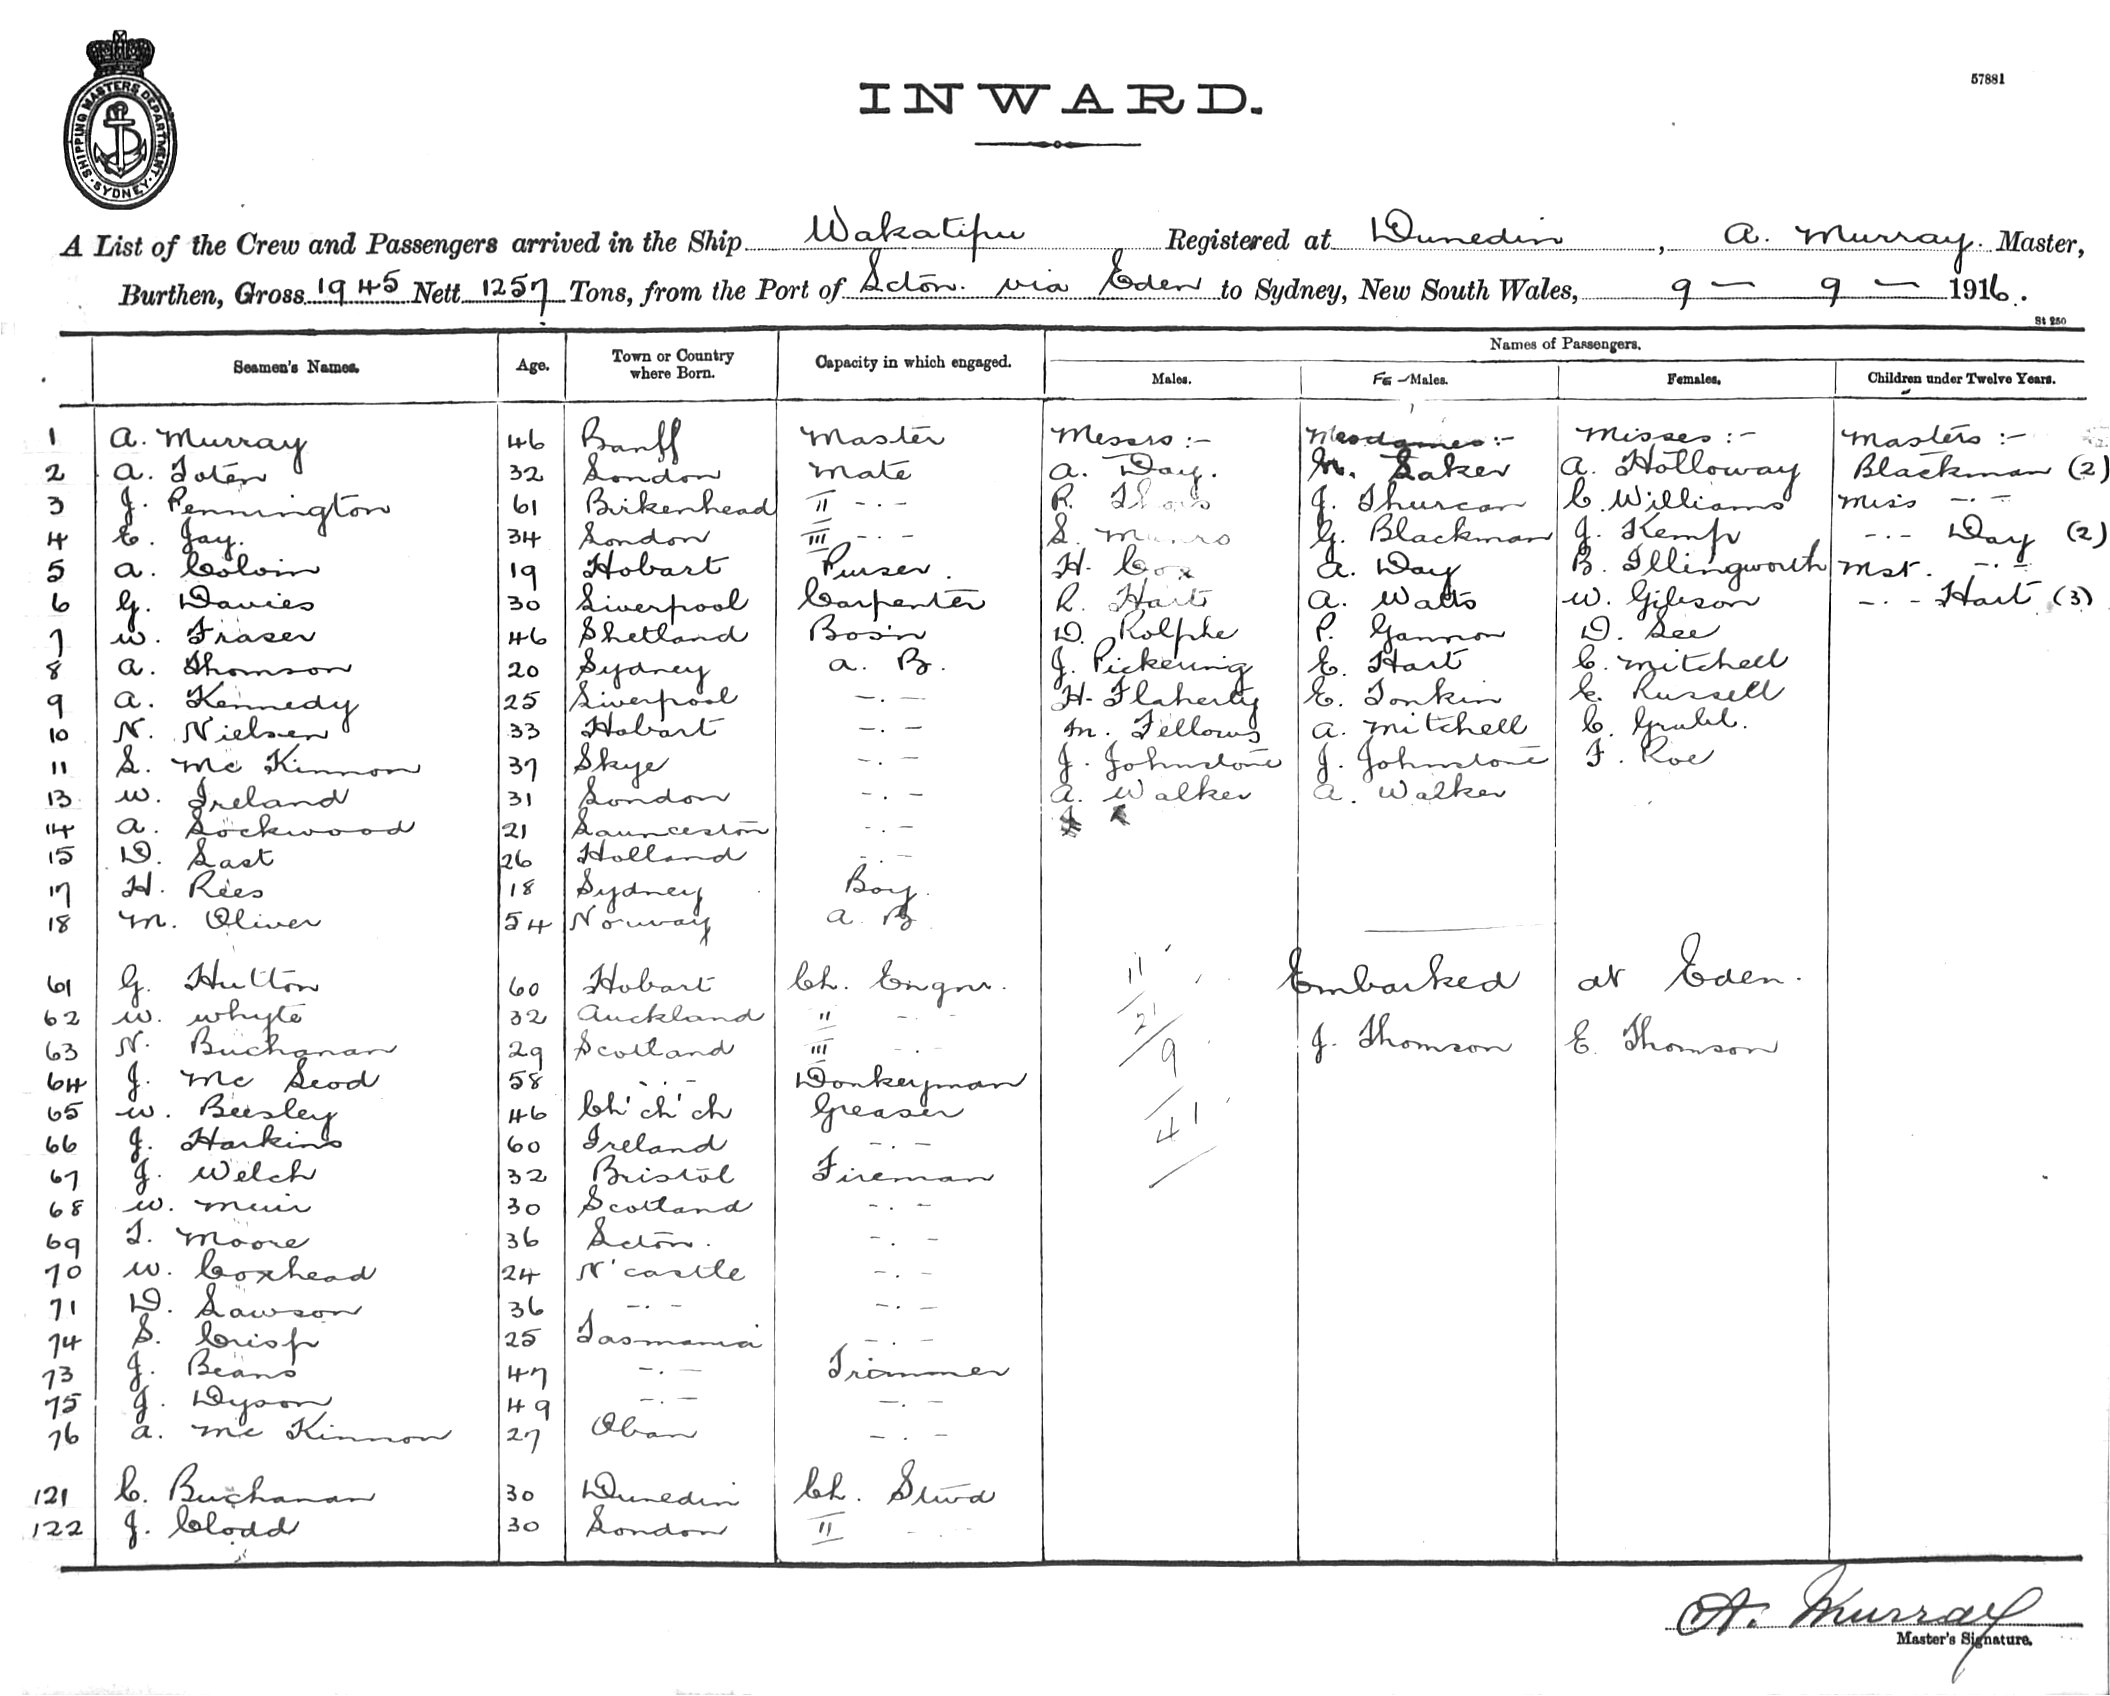 SHIPPING MASTERS DEPARTMENT. SYDNEY.
57881
INWARD.
A List of the Crew and Passengers arrived in the Ship Wakatipu Registered at Dunedin, A. Murray. Master,
Burthen, Gross 1945 Nett 1257 Tons, from the Port of Lcton. via Eden to Sydney, New South Wales, 9 — 9 — 1916.
St 250
Seamen's Names. Age. Town or Country where Born. Capacity in which engaged. Names of Passengers.
Males. Fe-Males. Females. Children under Twelve Years.
1 A. Murray 46 Banff Master Messrs :- Mesdames :- Misses :- Masters :-
2 A. Toten 32 London Mate A. Day. Laker A. Holloway Blackman (2)
3 J. Pennington 61 Birkenhead II -.- R. J. Thurcan C. Williams Miss -.-
4 E. Jay. 34 London III -.- S. Munro G. Blackman J. Kemp -.- Day (2)
5 A. Colvin 19 Hobart Purser. H. Cox A. Day B. Illingworth Mst. -.-
6 G. Davies 30 Liverpool Carpenter R. Hart A. Watts W. Gibson -.- Hart (3)
7 W. Fraser 46 Shetland Bosn D. Rolphe P. Gannon D. Lee
8 A. Thomson 20 Sydney A. B. J. Pickering E. Hart C. Mitchell
9 A. Kennedy 25 Liverpool -.- H. Flaherty E. Tonkin Russell
10 N. Nielsen 33 Hobart -.- M. Fellows A. Mitchell C. Grubb.
11 L. Mc Kinnon 37 Skye -.- J. Johnstone J. Johnstone F. Roe
13 W. Ireland 31 London -.- A. Walker A. Walker
14 A. Lockwood 21 Launceston -.-
15 D. Last 26 Holland -.-
17 H. Rees 18 Sydney Boy.
18 M. Oliver 54 Norway A. B
61 G. Hutton 60 Hobart Ch. Engnr. 11 Embarked at Eden.
62 W. Whyte 32 Auckland II -.- 21
63 N. Buchanan 29 Scotland III -.- 9 J. Thomson E. Thomson
64 J. Mc Leod 58 -.- Donkeyman
65 W. Beesley 46 Ch'ch'ch Greaser 41
66 J. Harkins 60 Ireland -.-
67 J. Welch 32 Bristol Fireman
68 W. Muir 30 Scotland -.-
69 T. Moore 36 Lcton. -.-
70 W. Coxhead 24 N'castle -.-
71 D. Lawson 36 -.- -.-
74 S. Crisp 25 Tasmania -.-
73 J. Beans 47 -.- Trimmer
75 J. Dyson 49 -.- -.-
76 A. Mc Kinnon 27 Oban -.-
121 C. Buchanan 30 Dunedin Ch. Stwd
122 J. Clodd 30 London II -.-
A. Murray
Master's Signature.